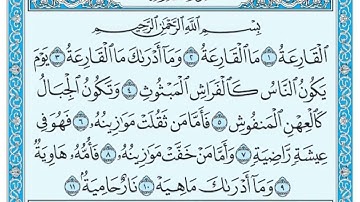 بِسْمِ اللَّهِ الرَّحْمَٰنِ الرَّحِيمِ
الْقَارِعَةُ ١ مَا الْقَارِعَةُ ٢ وَمَا أَدْرَاكَ مَا الْقَارِعَةُ ٣ يَوْمَ
يَكُونُ النَّاسُ كَالْفَرَاشِ الْمَبْثُوثِ ٤ وَتَكُونُ الْجِبَالُ
كَالْعِهْنِ الْمَنفُوشِ ٥ فَأَمَّا مَن ثَقُلَتْ مَوَازِينُهُ ٦ فَهُوَ فِي
عِيشَةٍ رَّاضِيَةٍ ٧ وَأَمَّا مَنْ خَفَّتْ مَوَازِينُهُ ٨ فَأُمُّهُ هَاوِيَةٌ
٩ وَمَا أَدْرَاكَ مَا هِيَهْ ١٠ نَارٌ حَامِيَةٌ ١١